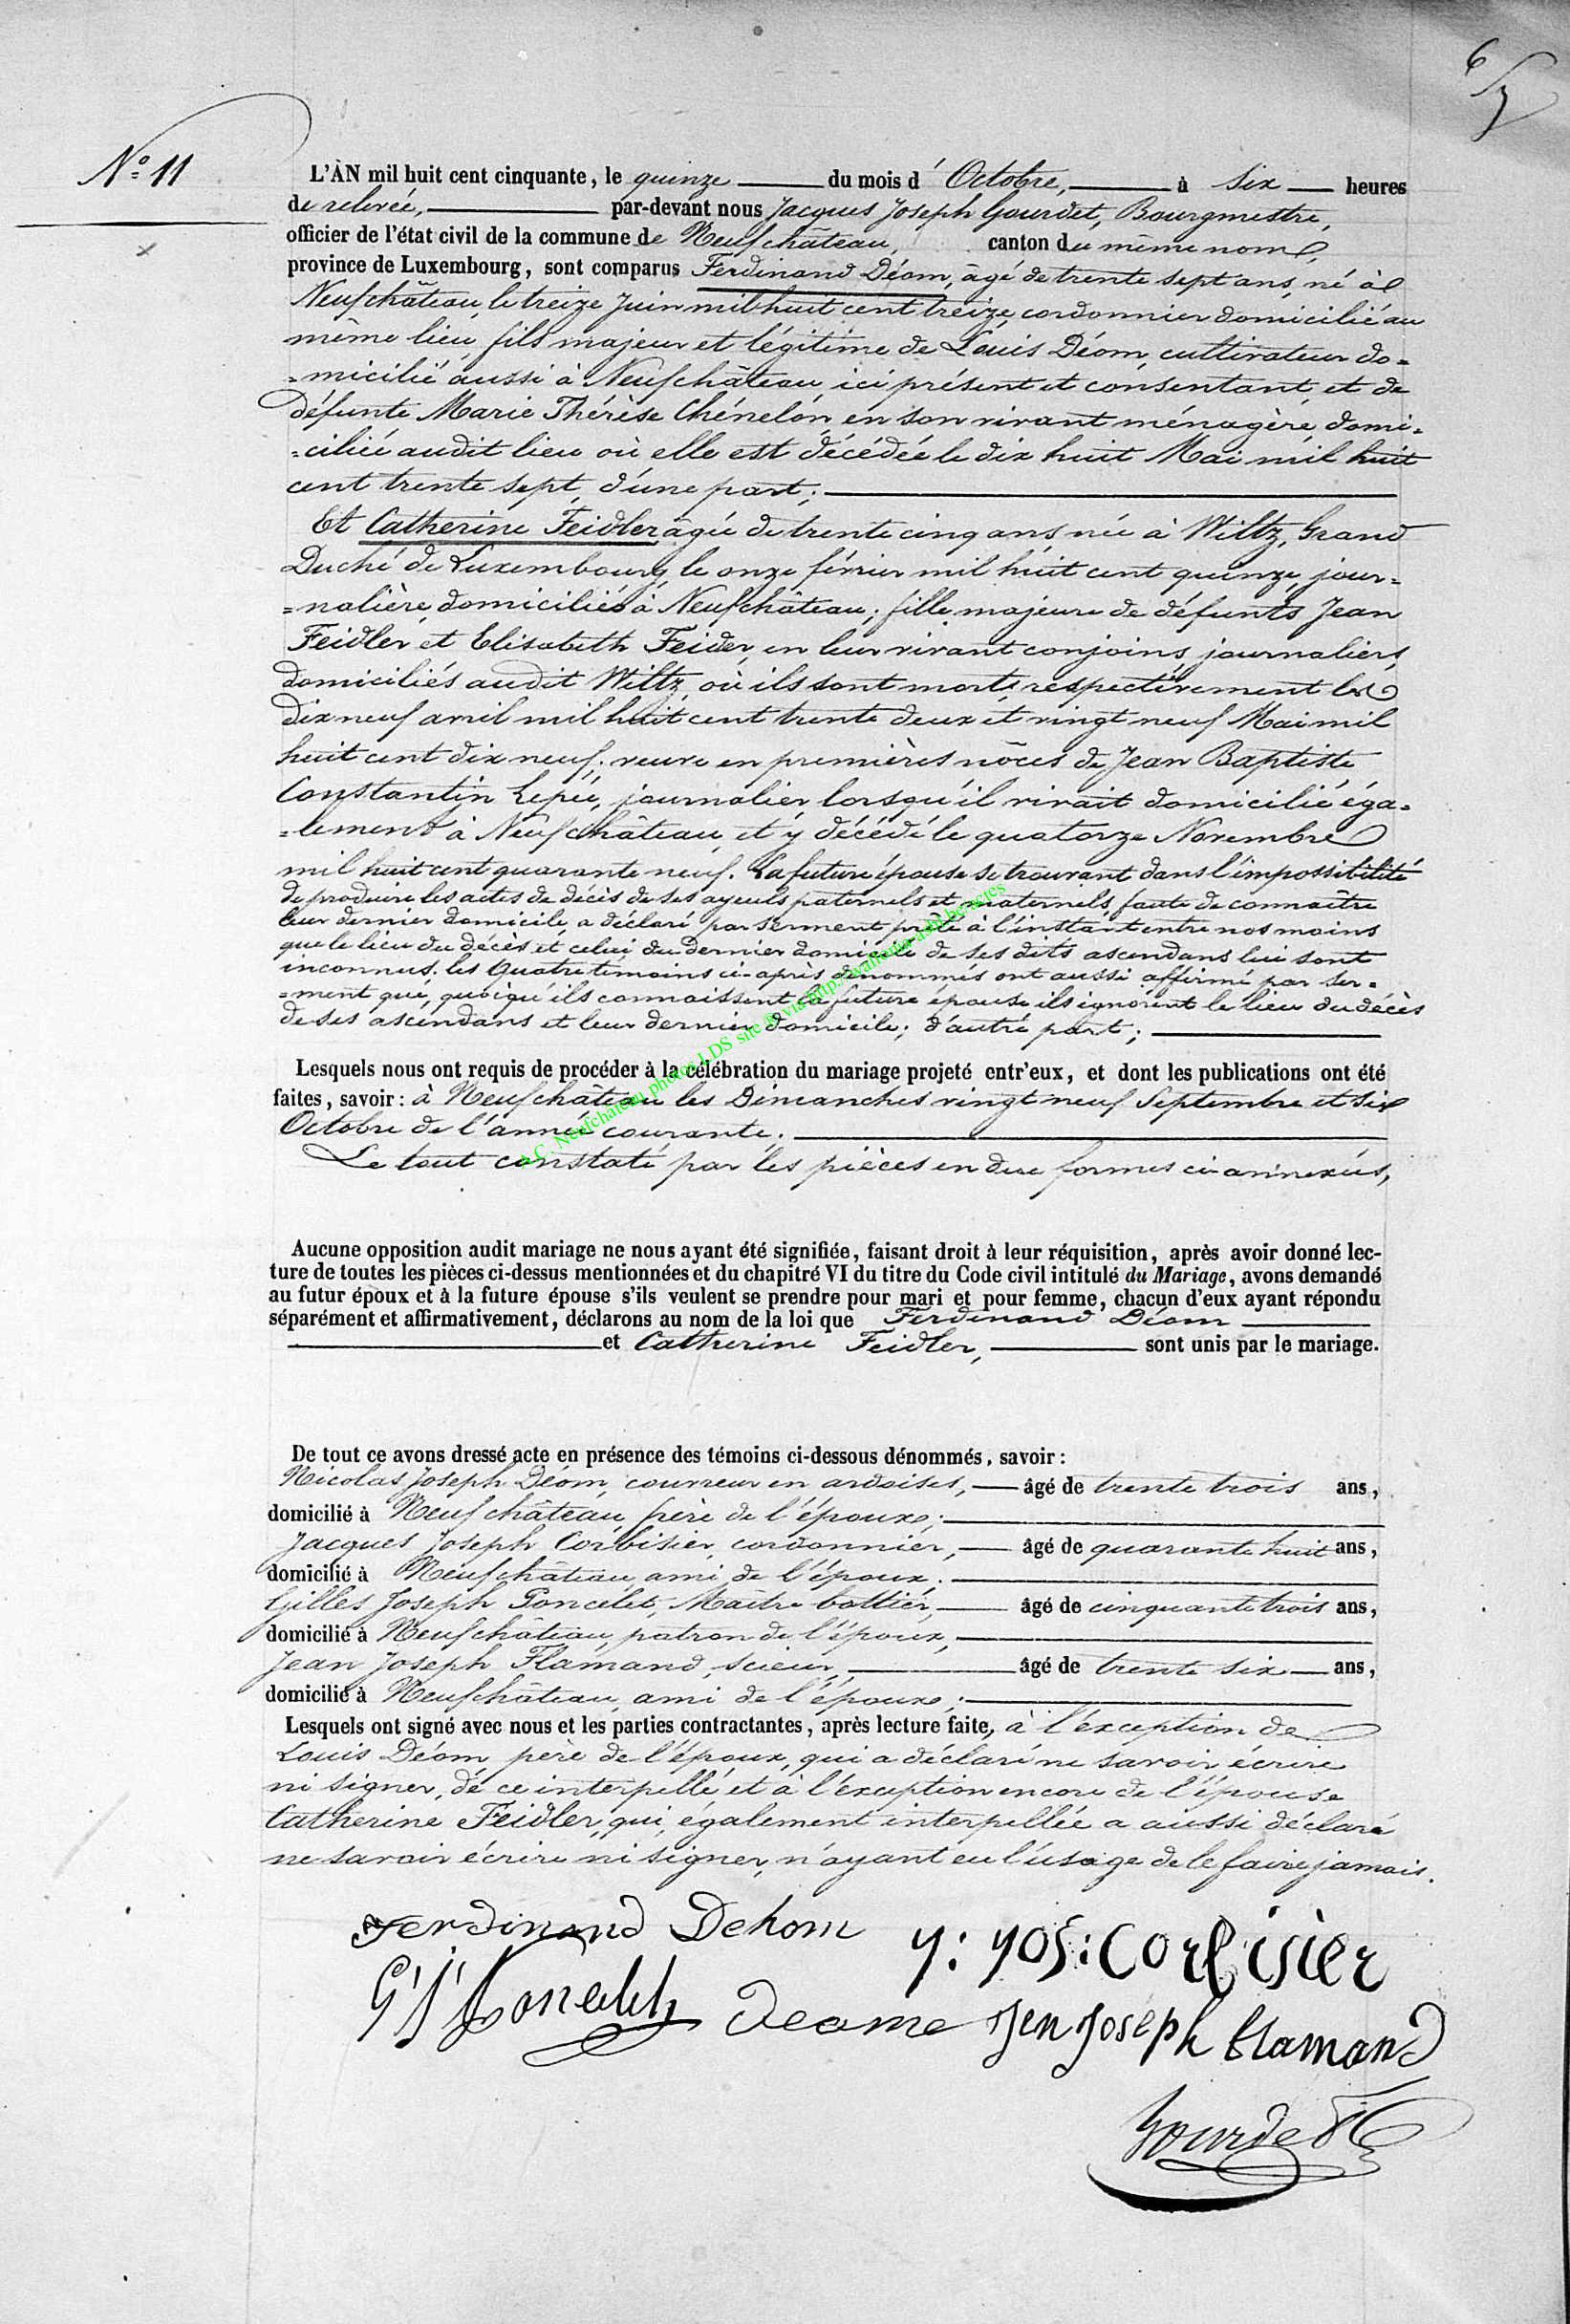 6/7
N.º 11
L'AN mil huit cent cinquante, le quinze du mois d' Octobre, à six heures
de relevée, par-devant nous Jacques Joseph Gourdet, Bourgmestre,
officier de l'état civil de la commune de Neufchâteau, canton du même nom,
province de Luxembourg, sont comparus Ferdinand Déom, âgé de trente sept ans, né à
Neufchâteau, le treize Juin mil huit cent treize, cordonnier domicilié au
même lieu, fils majeur et légitime de Louis Déom, cultivateur do=
=micilié aussi à Neufchâteau, ici présent et consentant, et de
défunte Marie Thérèse Chénelon, en son vivant ménagère, domi=
=ciliée audit lieu où elle est décédée le dix huit Mai mil huit
cent trente sept, d'une part;
Et Catherine Feidler âgée de trente cinq ans née à Wiltz, Grand
Duché de Luxembourg, le onze février mil huit cent quinze, jour=
=nalière, domiciliée à Neufchâteau; fille majeure de défunts Jean
Feidler et Elisabeth Feider, en leur vivant conjoins, journaliers,
domiciliés audit Wiltz, où ils sont morts respectivement les
dix neuf avril mil huit cent trente deux et vingt neuf Mai mil
huit cent dix neuf; veuve en premières nôces de Jean Baptiste
Constantin Lepié, journalier, lorsqu'il vivait domicilié éga=
=lement à Neufchâteau, et y décédé le quatorze Novembre
mil huit cent quarante neuf. La future épouse se trouvant dans l'impossibilité
de produire les actes de décès de ses ayeuls paternels et maternels, faute de connaître
leur dernier domicile, a déclaré par serment prêté à l'instant entre nos mains
que le lieu du décès et celui du dernier domicile de ses dits ascendans lui sont
inconnus. les quatre témoins ci-après dénommés ont aussi affirmé par ser=
=ment que, quoiqu'ils connaissent la future épouse ils ignorent le lieu du décès
de ses ascendans et leur dernier domicile; d'autre part;
Lesquels nous ont requis de procéder à la célébration du mariage projeté entr'eux, et dont les publications ont été
faites, savoir: à Neufchâteau les Dimanches vingt neuf Septembre et six
Octobre de l'année courante;
Le tout constaté par les pièces en due formes ci-annexées,
A.C. Neufchateau photos LDS site @ via http://wallonia-asbl.be/actes
Aucune opposition audit mariage ne nous ayant été signifiée, faisant droit à leur réquisition, après avoir donné lec-
ture de toutes les pièces ci-dessus mentionnées et du chapitré VI du titre du Code civil intitulé du Mariage, avons demandé
au futur époux et à la future épouse s'ils veulent se prendre pour mari et pour femme, chacun d'eux ayant répondu
séparément et affirmativement, déclarons au nom de la loi que Ferdinand Déom
et Catherine Feidler, sont unis par le mariage.
De tout ce avons dressé acte en présence des témoins ci-dessous dénommés, savoir:
Nicolas Joseph Déom, couvreur en ardoises, âgé de trente trois ans,
domicilié à Neufchâteau, frère de l'époux;
Jacques Joseph Corbisier, cordonnier, âgé de quarante huit ans,
domicilié à Neufchâteau, ami de l'époux;
Gilles Joseph Poncelet, Maître bottier, âgé de cinquante trois ans,
domicilié à Neufchâteau, patron de l'époux,
Jean Joseph Flamand, scieur, âgé de trente six ans,
domicilié à Neufchâteau, ami de l'époux;
Lesquels ont signé avec nous et les parties contractantes, après lecture faite, à l'exception de
Louis Déom père de l'époux, qui a déclaré ne savoir écrire
ni signer, de ce interpellé et à l'exception encore de l'épouse
Catherine Feidler, qui, également interpellée a aussi déclaré
ne savoir écrire ni signer, n'ayant eu l'usage de le faire jamais.
Ferdinand Dehom J: Jos: Corbisièr
G J Poncelet Deome Jen Joseph flamand
Gourdet